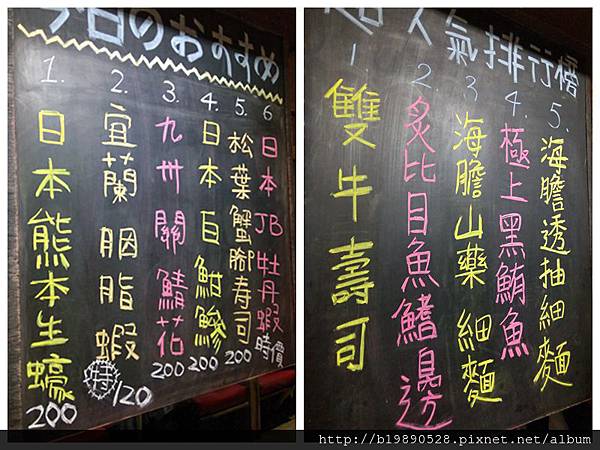 今日のおすすめ
1.
日本熊本生蠔
200
2.
宜蘭胭脂蝦
時 120
3.
九州關鯖花
200
4.
日本白魽鰺
200
5.
松葉蟹腳寿司
200
6
日本JB牡丹蝦
時價
超人氣排行榜
1
雙牛壽司
2.
炙比目魚鰭邊
3
海膽山藥細麵
4.
極上黑鮪魚
5.
海膽透抽細麵
http://b19890528.pixnet.net/album